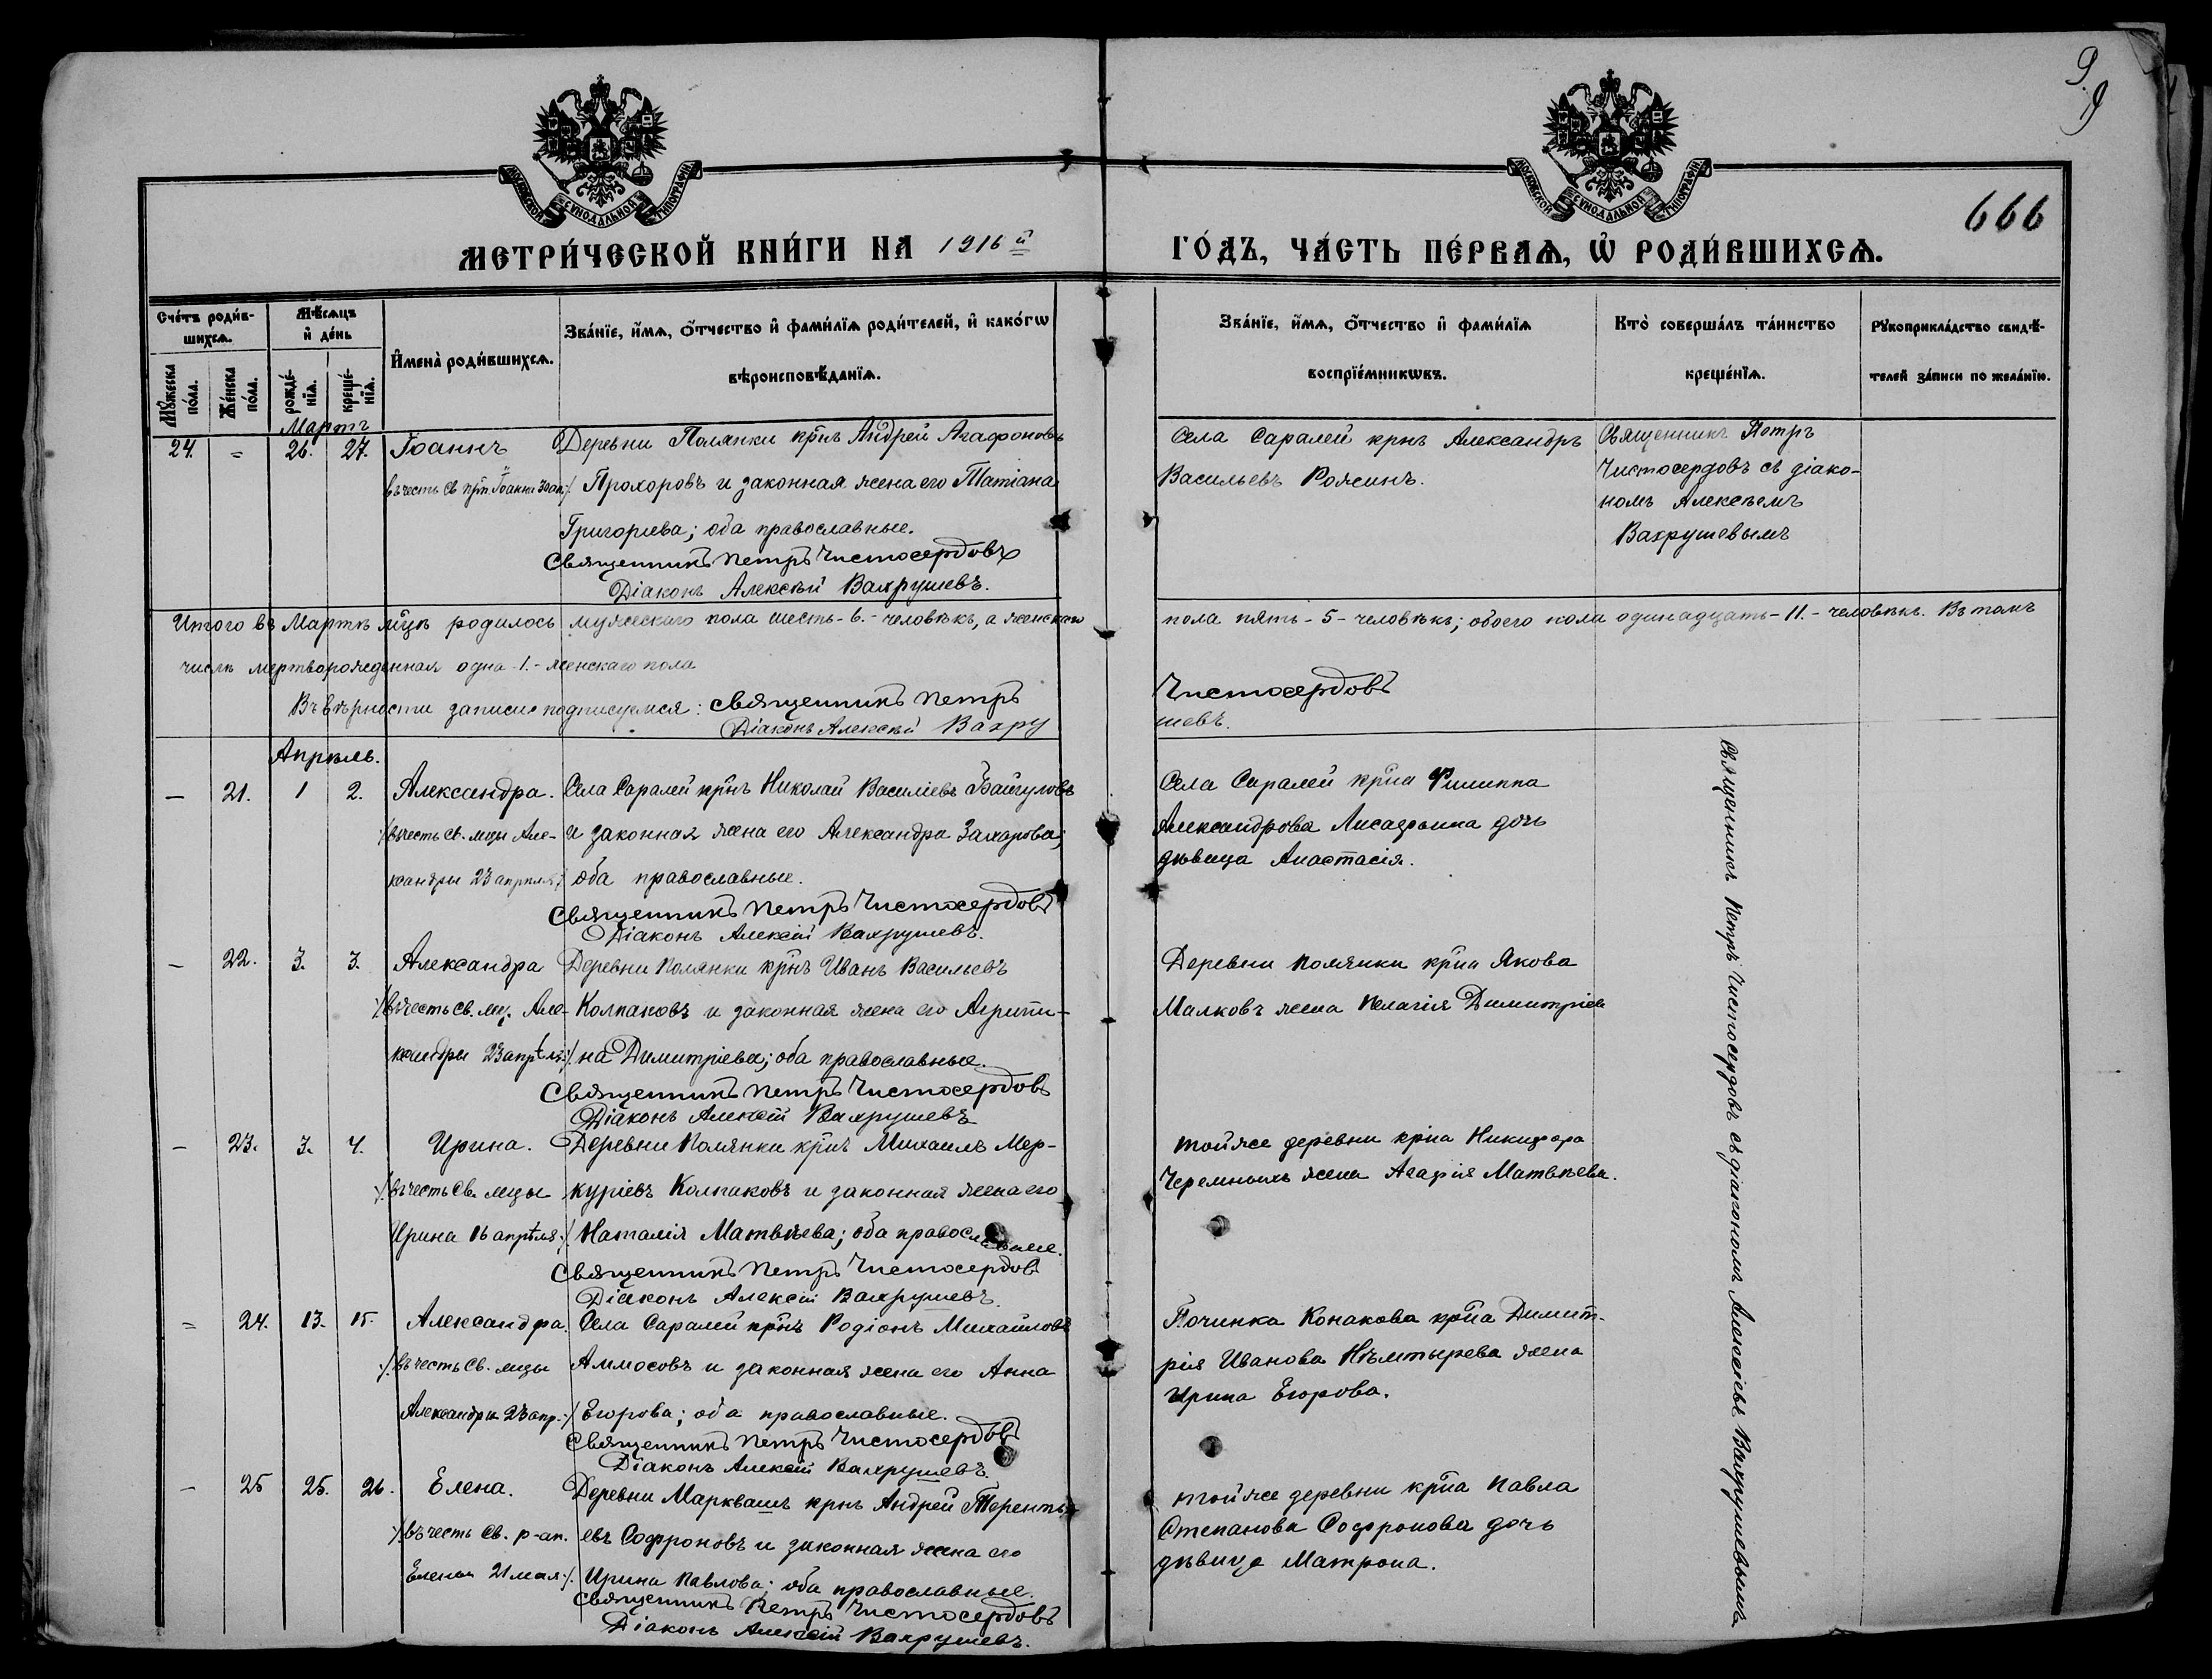 9.
9
666
МОСКОВСКОЙ СѴНОДАЛЬНОЙ ТИПОГРАФІИ
МОСКОВСКОЙ СѴНОДАЛЬНОЙ ТИПОГРАФІИ
МЕТРИ́ЧЕСКОЙ КНИ́ГИ НА 1916й
ГО́ДЪ, ЧА́СТЬ ПЕ́РВАѦ, Ѡ҆ РОДИ́ВШИХСѦ.
Сче́тъ роди́в-
шихсѧ.
Мꙋ́жеска по́ла.
Же́нска по́ла.
Мѣ́сѧцъ
и҆ де́нь
рожде́-
нїѧ.
креще́-
нїѧ.
И҆мена̀ роди́вшихсѧ.
Зва́нїе, и҆́мѧ, ѻ҆́тчество и҆ фами́лїѧ роди́телей, и҆ како́гѡ
вѣроисповѣ́данїѧ.
Зва́нїе, и҆́мѧ, ѻ҆́тчество и҆ фами́лїѧ
воспрїе́мникѡвъ.
Кто̀ соверша́лъ та́инство
креще́нїѧ.
Рꙋкоприкла́дство свидѣ́-
телей за́писи по жела́нїю.
Мартъ
24. = 26. 27. Іоаннъ
въ честь св. прп. Іоанна
Деревни Полянки крнъ Андрей Агафоновъ
Прохоровъ и законная жена его Татіана
Григорьева; оба православные.
Священникъ Петръ Чистосердовъ
Діаконъ Алексѣй Вахрушевъ.
Села Саралей крнъ Александръ
Васильевъ Рожинъ.
Священникъ Петръ
Чистосердовъ съ діако-
номъ Алексѣемъ
Вахрушевымъ
Итого въ Мартѣ мцѣ родилось мужескаго пола шесть - 6. - человѣкъ, а женскаго пола пять - 5 - человѣкъ; обоего пола одинадцать - 11. - человѣкъ. Въ томъ
числѣ мертворожденная одна - 1. - женскаго пола
Въ вѣрности записи подписуемся: священникъ Петръ Чистосердовъ
Діаконъ Алексѣй Вахрушевъ.
Апрѣль.
— 21. 1 2. Александра.
/въ честь св. мцы Але-
ксандры 23 апрѣля/
Села Саралей крнъ Николай Василіевъ Байгуловъ
и законная жена его Александра Захарова;
оба православные.
Священникъ Петръ Чистосердовъ
Діаконъ Алексій Вахрушевъ.
Села Саралей крна Филиппа
Александрова дочь
дѣвица Анастасія.
— 22. 3. 3. Александра
/въ честь св. мц. Але-
ксандры 23 апрѣля/
Деревни Полянки крнъ Иванъ Васильевъ
Колпаковъ и законная жена его Агрипи-
на Димитріева; оба православные.
Священникъ Петръ Чистосердовъ
Діаконъ Алексій Вахрушевъ
Деревни Полянки крна Якова
Малковъ жена Пелагія Димитріев
— 23. 3. 4. Ирина.
/въ честь св. мцы
Ирина 16 апрѣля/
Деревни Полянки крнъ Михаилъ Мер-
куріевъ Колпаковъ и законная жена его
Наталія Матвѣева; оба православные.
Священникъ Петръ Чистосердовъ
Діаконъ Алексій Вахрушевъ
Той же деревни крна Никифора
Черемныхъ жена Агафія Матвѣева.
= 24. 13. 15. Александра.
/въ честь св. мцы
Александры 23 апр./
Села Саралей крнъ Родіонъ Михайловъ
Аммосовъ и законная жена его Анна
Егорова; оба православные.
Священникъ Петръ Чистосердовъ
Діаконъ Алексій Вахрушевъ.
Починка Конакова крна Димит-
рія Иванова жена
Ирина Егорова.
— 25 25. 26. Елена.
/въ честь св. р-ап.
Елены 21 мая/
Деревни Марквашъ крнъ Андрей Теренть-
евъ Софроновъ и законная жена его
Ирина Павлова; оба православные.
Священникъ Петръ Чистосердовъ
Діаконъ Алексій Вахрушевъ.
Той же деревни крна Павла
Степанова Софронова дочь
дѣвица Матрона.
Священникъ Петръ Чистосердовъ съ діакономъ Алексіемъ Вахрушевымъ